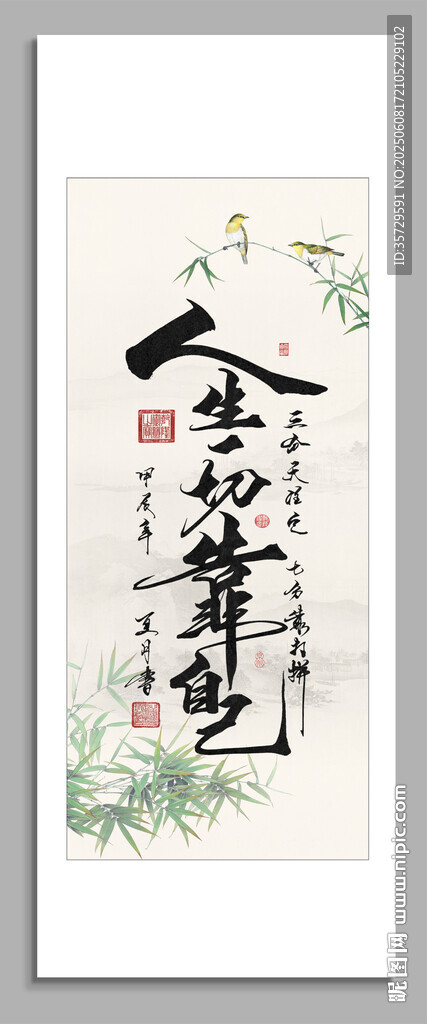 人生一切靠自己
三分天注定
七分靠打拼
甲辰年
夏月书
ID:35729591 NO:20250608172105229102
昵图网 www.nipic.com